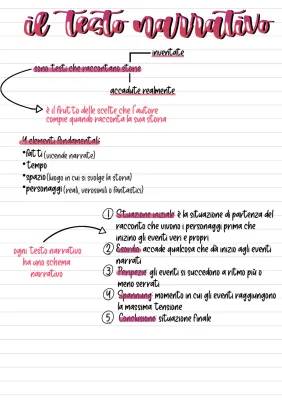 il testo narrativo
inventate
sono testi che raccontano storie
accadute realmente
è il frutto delle scelte che l'autore
compie quando racconta la sua storia
4 elementi fondamentali:
•fatti (vicende narrate)
•tempo
•spazio (luogo in cui si svolge la storia)
•personaggi (reali, verosimili o fantastici)
① Situazione iniziale: è la situazione di partenza del
racconto che vivono i personaggi prima che
inizino gli eventi veri e propri
ogni testo narrativo
ha uno schema
narrativo
② Esordio: accade qualcosa che dà inizio agli eventi
narrati
③ Peripezie: gli eventi si succedono a ritmo più o
meno serrati
④ Spannung: momento in cui gli eventi raggiungono
la massima tensione
⑤ Conclusione: situazione finale